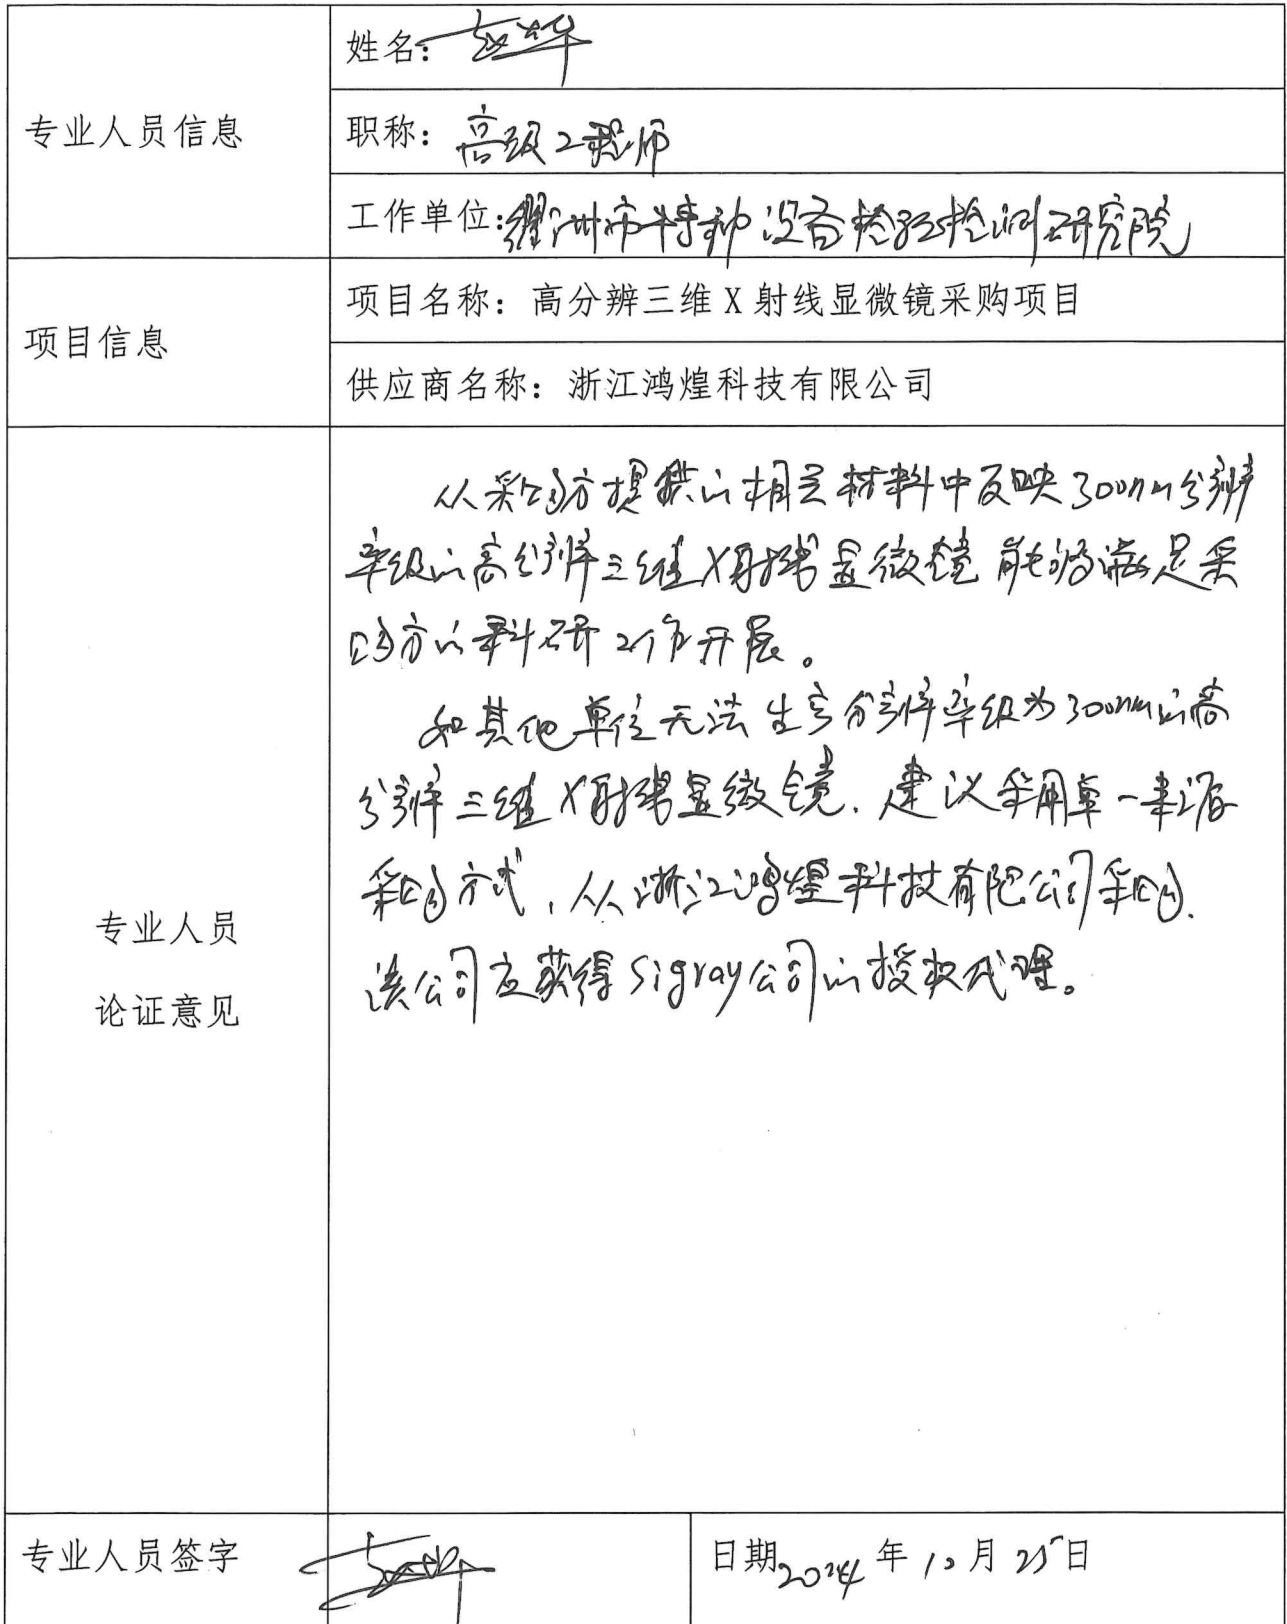 专业人员信息
姓名：赵华
职称：高级工程师
工作单位：衢州市特种设备检验检测研究院
项目信息
项目名称：高分辨三维 X 射线显微镜采购项目
供应商名称：浙江鸿煌科技有限公司
专业人员
论证意见
从采购方提供的相关材料中反映300nm分辨
率级的高分辨三维X射线显微镜能够满足采
购方的科研工作开展。
如其他单位无法生产分辨率级为300nm的高
分辨三维X射线显微镜，建议采用单一来源
采购方式，从浙江鸿煌科技有限公司采购，
该公司应获得Sigray公司的授权代理。
专业人员签字
日期2024年10月25日